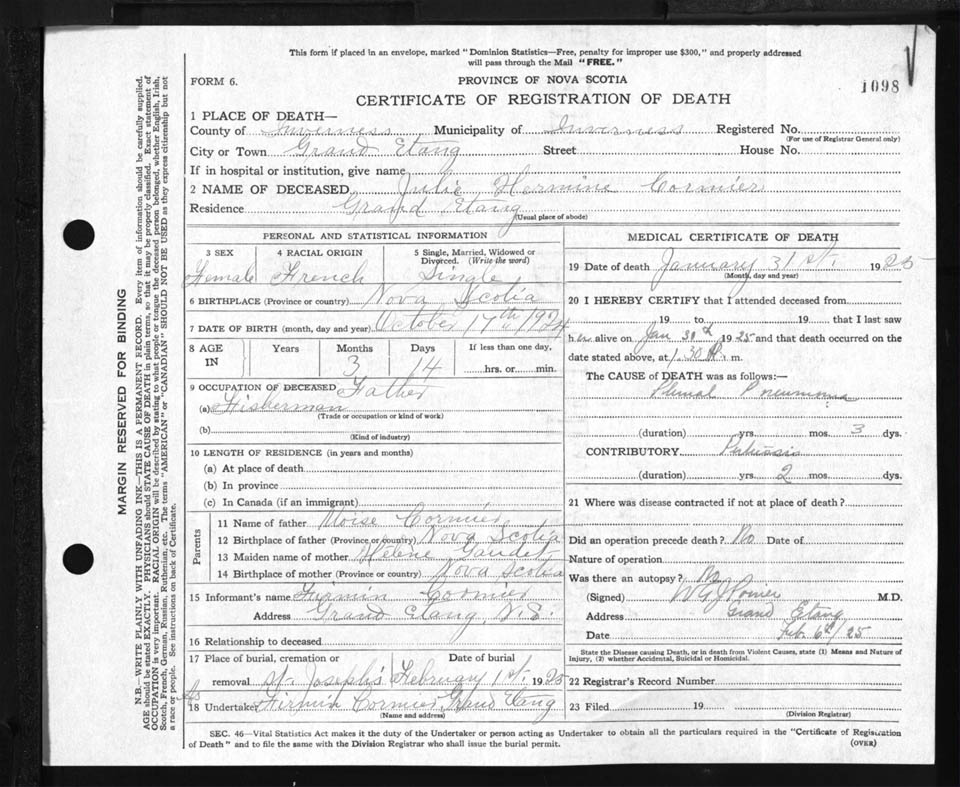 This form if placed in an envelope, marked "Dominion Statistics—Free, penalty for improper use $300," and properly addressed
will pass through the Mail "FREE."
FORM 6.
PROVINCE OF NOVA SCOTIA
1098
CERTIFICATE OF REGISTRATION OF DEATH
1 PLACE OF DEATH—
County of Inverness Municipality of Inverness Registered No.
(For use of Registrar General only)
City or Town Grand Etang Street House No.
If in hospital or institution, give name
2 NAME OF DECEASED Julie Hermine Cormier
Residence Grand Etang
(Usual place of abode)
PERSONAL AND STATISTICAL INFORMATION
3 SEX 4 RACIAL ORIGIN 5 Single, Married, Widowed or
Divorced. (Write the word)
Female French Single
6 BIRTHPLACE (Province or country) Nova Scotia
7 DATE OF BIRTH (month, day and year) October 17th 1924
8 AGE IN Years Months Days If less than one day,
3 14 hrs. or min.
9 OCCUPATION OF DECEASED Father
(a) Fisherman
(Trade or occupation or kind of work)
(b)
(Kind of industry)
10 LENGTH OF RESIDENCE (in years and months)
(a) At place of death
(b) In province
(c) In Canada (if an immigrant)
Parents
11 Name of father Moise Cormier
12 Birthplace of father (Province or country) Nova Scotia
13 Maiden name of mother Helene Gaudet
14 Birthplace of mother (Province or country) Nova Scotia
15 Informant's name Firmin Cormier
Address Grand Etang, N.S.
16 Relationship to deceased
17 Place of burial, cremation or Date of burial
removal St Joseph's February 1st 1925
18 Undertaker Firmin Cormier Grand Etang
(Name and address)
MEDICAL CERTIFICATE OF DEATH
19 Date of death January 31st. 1925
(Month, day and year)
20 I HEREBY CERTIFY that I attended deceased from
19 to 19 that I last saw
her alive on Jan 30th 1925 and that death occurred on the
date stated above, at 1.30 m.
The CAUSE of DEATH was as follows:—
Pneumonia
(duration) yrs. mos. 3 dys.
CONTRIBUTORY Pertussis
(duration) yrs. 2 mos. dys.
21 Where was disease contracted if not at place of death?
Did an operation precede death? No Date of
Nature of operation
Was there an autopsy? No
(Signed) M.D.
Address Grand Etang
Date Feb. 6th/25
State the Disease causing Death, or in death from Violent Causes, state (1) Means and Nature of
Injury, (2) whether Accidental, Suicidal or Homicidal.
22 Registrar's Record Number
23 Filed 19
(Division Registrar)
SEC. 46—Vital Statistics Act makes it the duty of the Undertaker or person acting as Undertaker to obtain all the particulars required in the "Certificate of Registration
of Death" and to file the same with the Division Registrar who shall issue the burial permit.
(OVER)
MARGIN RESERVED FOR BINDING
N.B.—WRITE PLAINLY WITH UNFADING INK—THIS IS A PERMANENT RECORD. Every item of information should be carefully supplied.
AGE should be stated EXACTLY. PHYSICIANS should STATE CAUSE OF DEATH in plain terms, so that it may be properly classified. Exact statement of
OCCUPATION is very important. RACIAL ORIGIN will be described by stating to what people or tongue the deceased person belonged, whether English, Irish,
Scotch, French, German, Russian, Ruthenian, etc. The terms "AMERICAN" or "CANADIAN" SHOULD NOT BE USED as they express citizenship but not
a race or people. See instructions on back of Certificate.